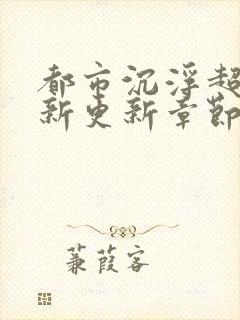 都市沉浮超
新更新章节
蒹葭客